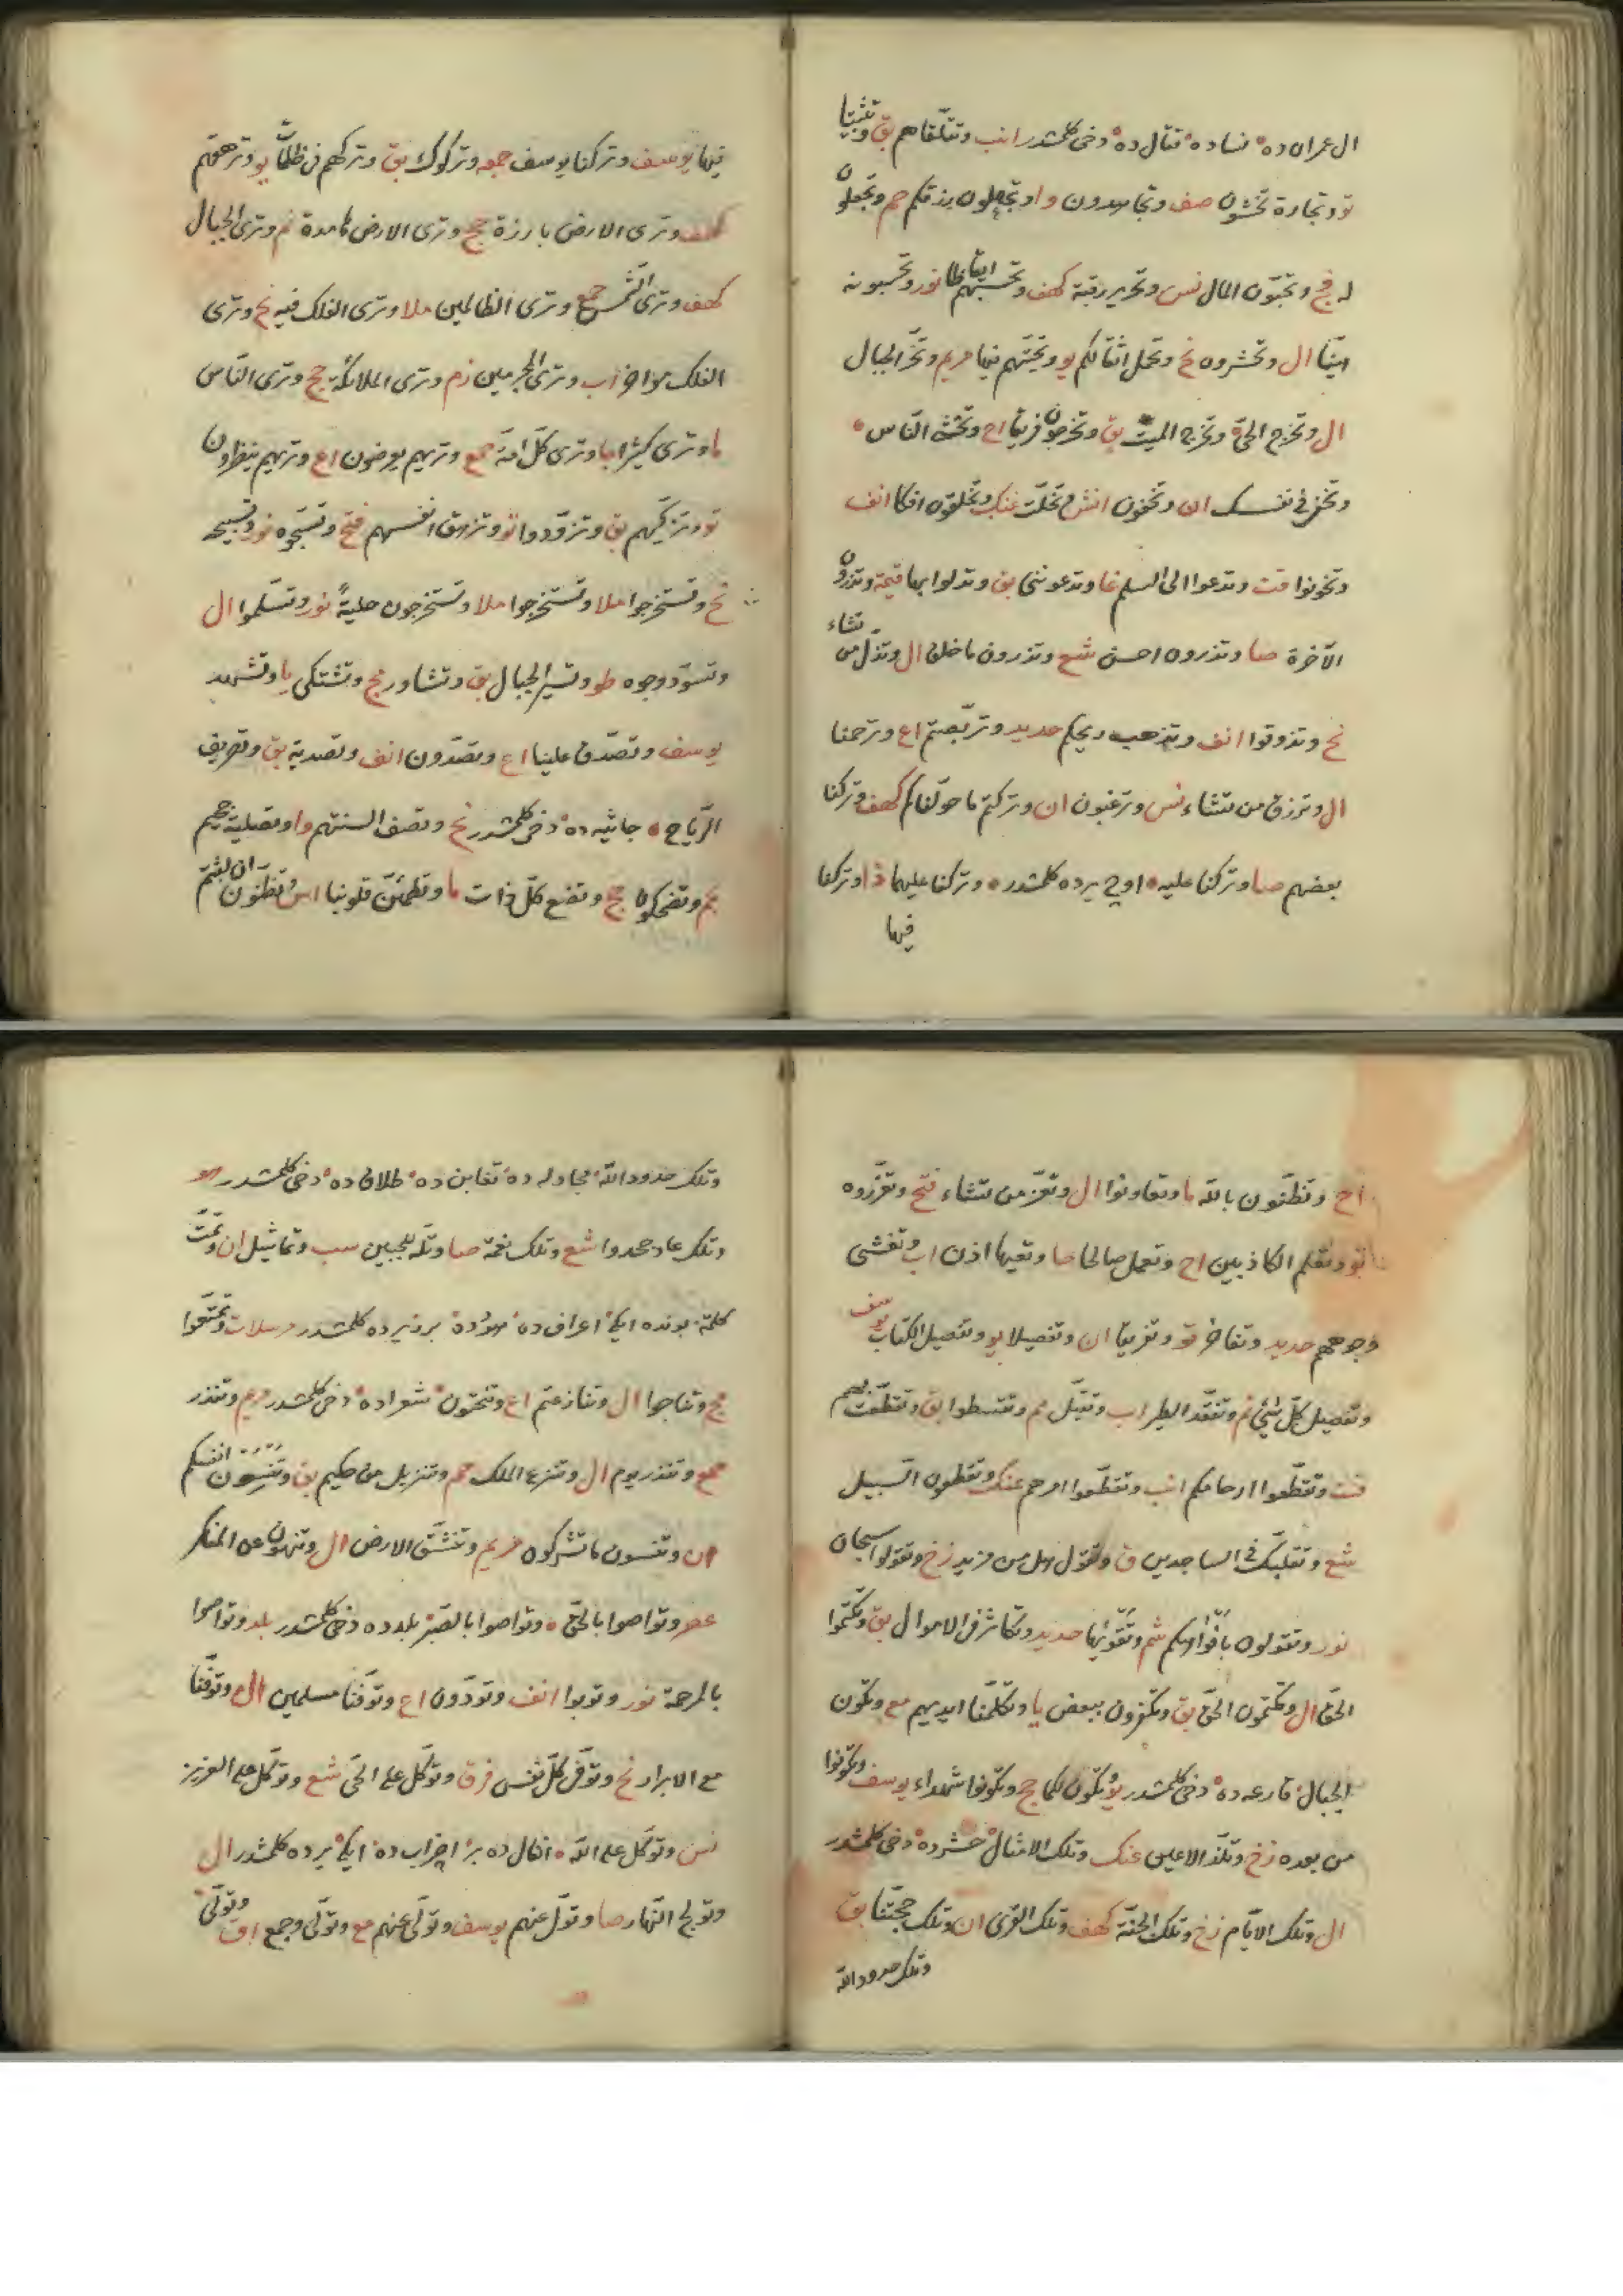 ال عمران ده نساده قتال ده دخی کلمشدر انب وتتلقاهم بق وتثبیتا
تو وتجارة تخشون صف وتجاهدون وا وتجعلون رزقكم حم وتجعلون
له فح وتحبون المال نس وتحرير رقبة كهف وتحسبهم ايقاظا نور وتحسبونه
هينا ال وتحشرون نخ وتحمل اثقالكم يو وتحيتهم فيها مريم وتخر الجبال
ال وتخرج الحي وتخرج الميت بق وتخرجون فريقا اح وتخشى الناس
وتخفى في نفسك ان وتخفون انش وتخلت عنك وتخلقون افكا انف
وتخونوا قت وتدعوا الى السلم غا وتدعوننى بق وتدلوا بها قيمة وتذرون
الآخرة صا وتذرون احسن شع وتذرون ما خلق ال وتذل من تشاء
نح وتذوقوا انف وتذهب ريحكم حديد وتربصتم اع وترحمنا
ال وترزق من تشاء نس وترغبون ان وتركتم ما خولناكم كهف وتركنا
بعضهم صا وتركنا عليه اوچ يرده كلمشدر وتركنا عليهما ذا وتركنا
فيها
فيها يوسف وتركنا يوسف جمعه وتركوك بق وتركهم فى ظلمات يو وترهقهم
كهف وترى الارض بارزة حج وترى الارض هامدة نم وترى الجبال
كهف وترى الشمس جمع وترى الظالمين ملا وترى الفلك فيه نح وترى
الفلك مواخر اب وترى المجرمين زم وترى الملائكة حج وترى الناس
ما وترى كثيرا جا وترى كل امة جمع وتريهم يعرضون اع وتريهم ينظرون
تو وتزكيهم بق وتزودوا تو وتزهق انفسهم فتح وتسبحوه نور وتسبيحه
نح وتستخرجوا ملا وتستخرجوا ملا وتستخرجون حلية نور وتسلموا ال
وتسود وجوه طو وتسير الجبال بق وتشاور مج وتشتكى يا وتشهد
يوسف وتصدق علينا اع وتصدون انف وتصدية بق وتصريف
الرياح جاثيه ده دخی کلمشدر نح وتصف السنتهم وا وتصلية جحيم
نجم وتضحكون حج وتضع كل ذات ما وتطمئن قلوبنا اس وتظنون ان لبثتم
اح وتظنون بالله ما وتعاونوا ال وتعز من تشاء فتح وتعزروه
تو وتعلم الكاذبين اح وتعمل صالحا حا وتعيها اذن اب وتغشى
وجوههم حديد وتفاخر تو وتفريقا ان وتفصيلا يو وتفصيل الكتاب يوسف
وتفصيل كل شئ نم وتفقد الطير اب وتقبل مم وتقسطوا بق وتقطعت بهم
قت وتقطعوا ارحامكم انب وتقطعوا امرهم عنك وتقطعون السبيل
شع وتقلبك فى الساجدين ق وتقول هل من مزيد زخ وتقولوا سبحان
نور وتقولون بافواهكم شم وتقويها حديد وتكاثر فى الاموال بق وتكتموا
الحق ال وتكتمون الحق بق وتكفرون ببعض يا وتكلمنا ايديهم مع وتكون
الجبال قارعه ده دخی کلمشدر يو وتكون لكما حج وتكونوا شهداء يوسف وتكونوا
من بعده زخ وتلذ الاعين عنك وتلك الامثال حشرده دخی کلمشدر
ال وتلك الايام زخ وتلك الجنة كهف وتلك القرى ان وتلك حجتنا بق
وتلك حدود الله
وتلك حدود الله مجادله ده تغابن ده طلاق ده دخی کلمشدر هو
وتلك عاد جحدوا شع وتلك نعمة صا وتله للجبين سب وتماثيل ان وتمت
كلمة بونده ایکی اعراف ده هودده برر یرده کلمشدر مرسلات وتمتعوا
مج وتناجوا ال وتنازعتم اع وتنحتون شعراده دخی کلمشدر مريم وتنذر
جمع وتنذر يوم ال وتنزع الملك حم وتنزيل من حكيم بق وتنسون انفسكم
ان وتنسون ما تشركون مريم وتنشق الارض ال وتنهون عن المنكر
عصر وتواصوا بالحق وتواصوا بالصبر بلدده دخی کلمشدر بلد وتواصوا
بالمرحمة نور وتوبوا انف وتودون اع وتوفنا مسلمين ال وتوفنا
مع الابرار نح وتوفى كل نفس فرق وتوكل على الحى شع وتوكل على العزيز
نس وتوكل على الله انفال ده بر احزاب ده ایکی یرده کلمشدر ال
وتولج النهار صا وتول عنهم يوسف وتولى عنهم مع وتولى وجمع اق وتولى